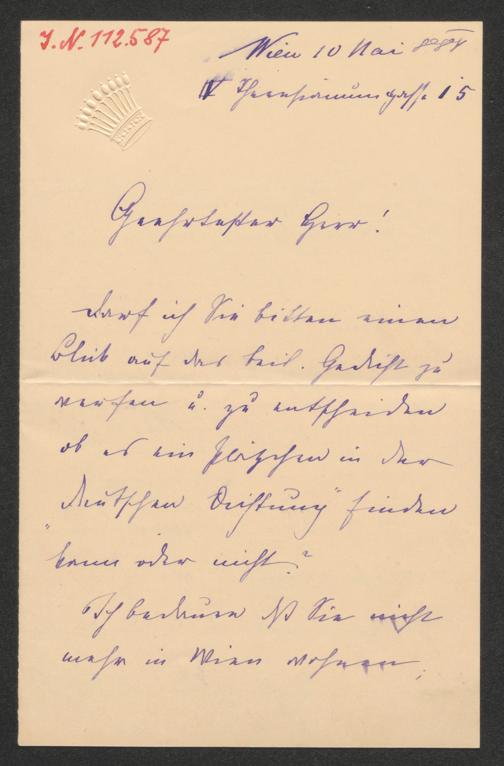 J.N. 112.587
Wien 10 Mai
IV Theresianumgasse 15
Geehrtester Herr!
Darf ich Sie bitten einen
Blick auf das beil. Gedicht zu
werfen u. zu entscheiden
ob es ein Plätzchen in der
„deutschen Dichtung" finden
kann oder nicht?
Ich bedaure daß Sie nicht
mehr in Wien wohnen,